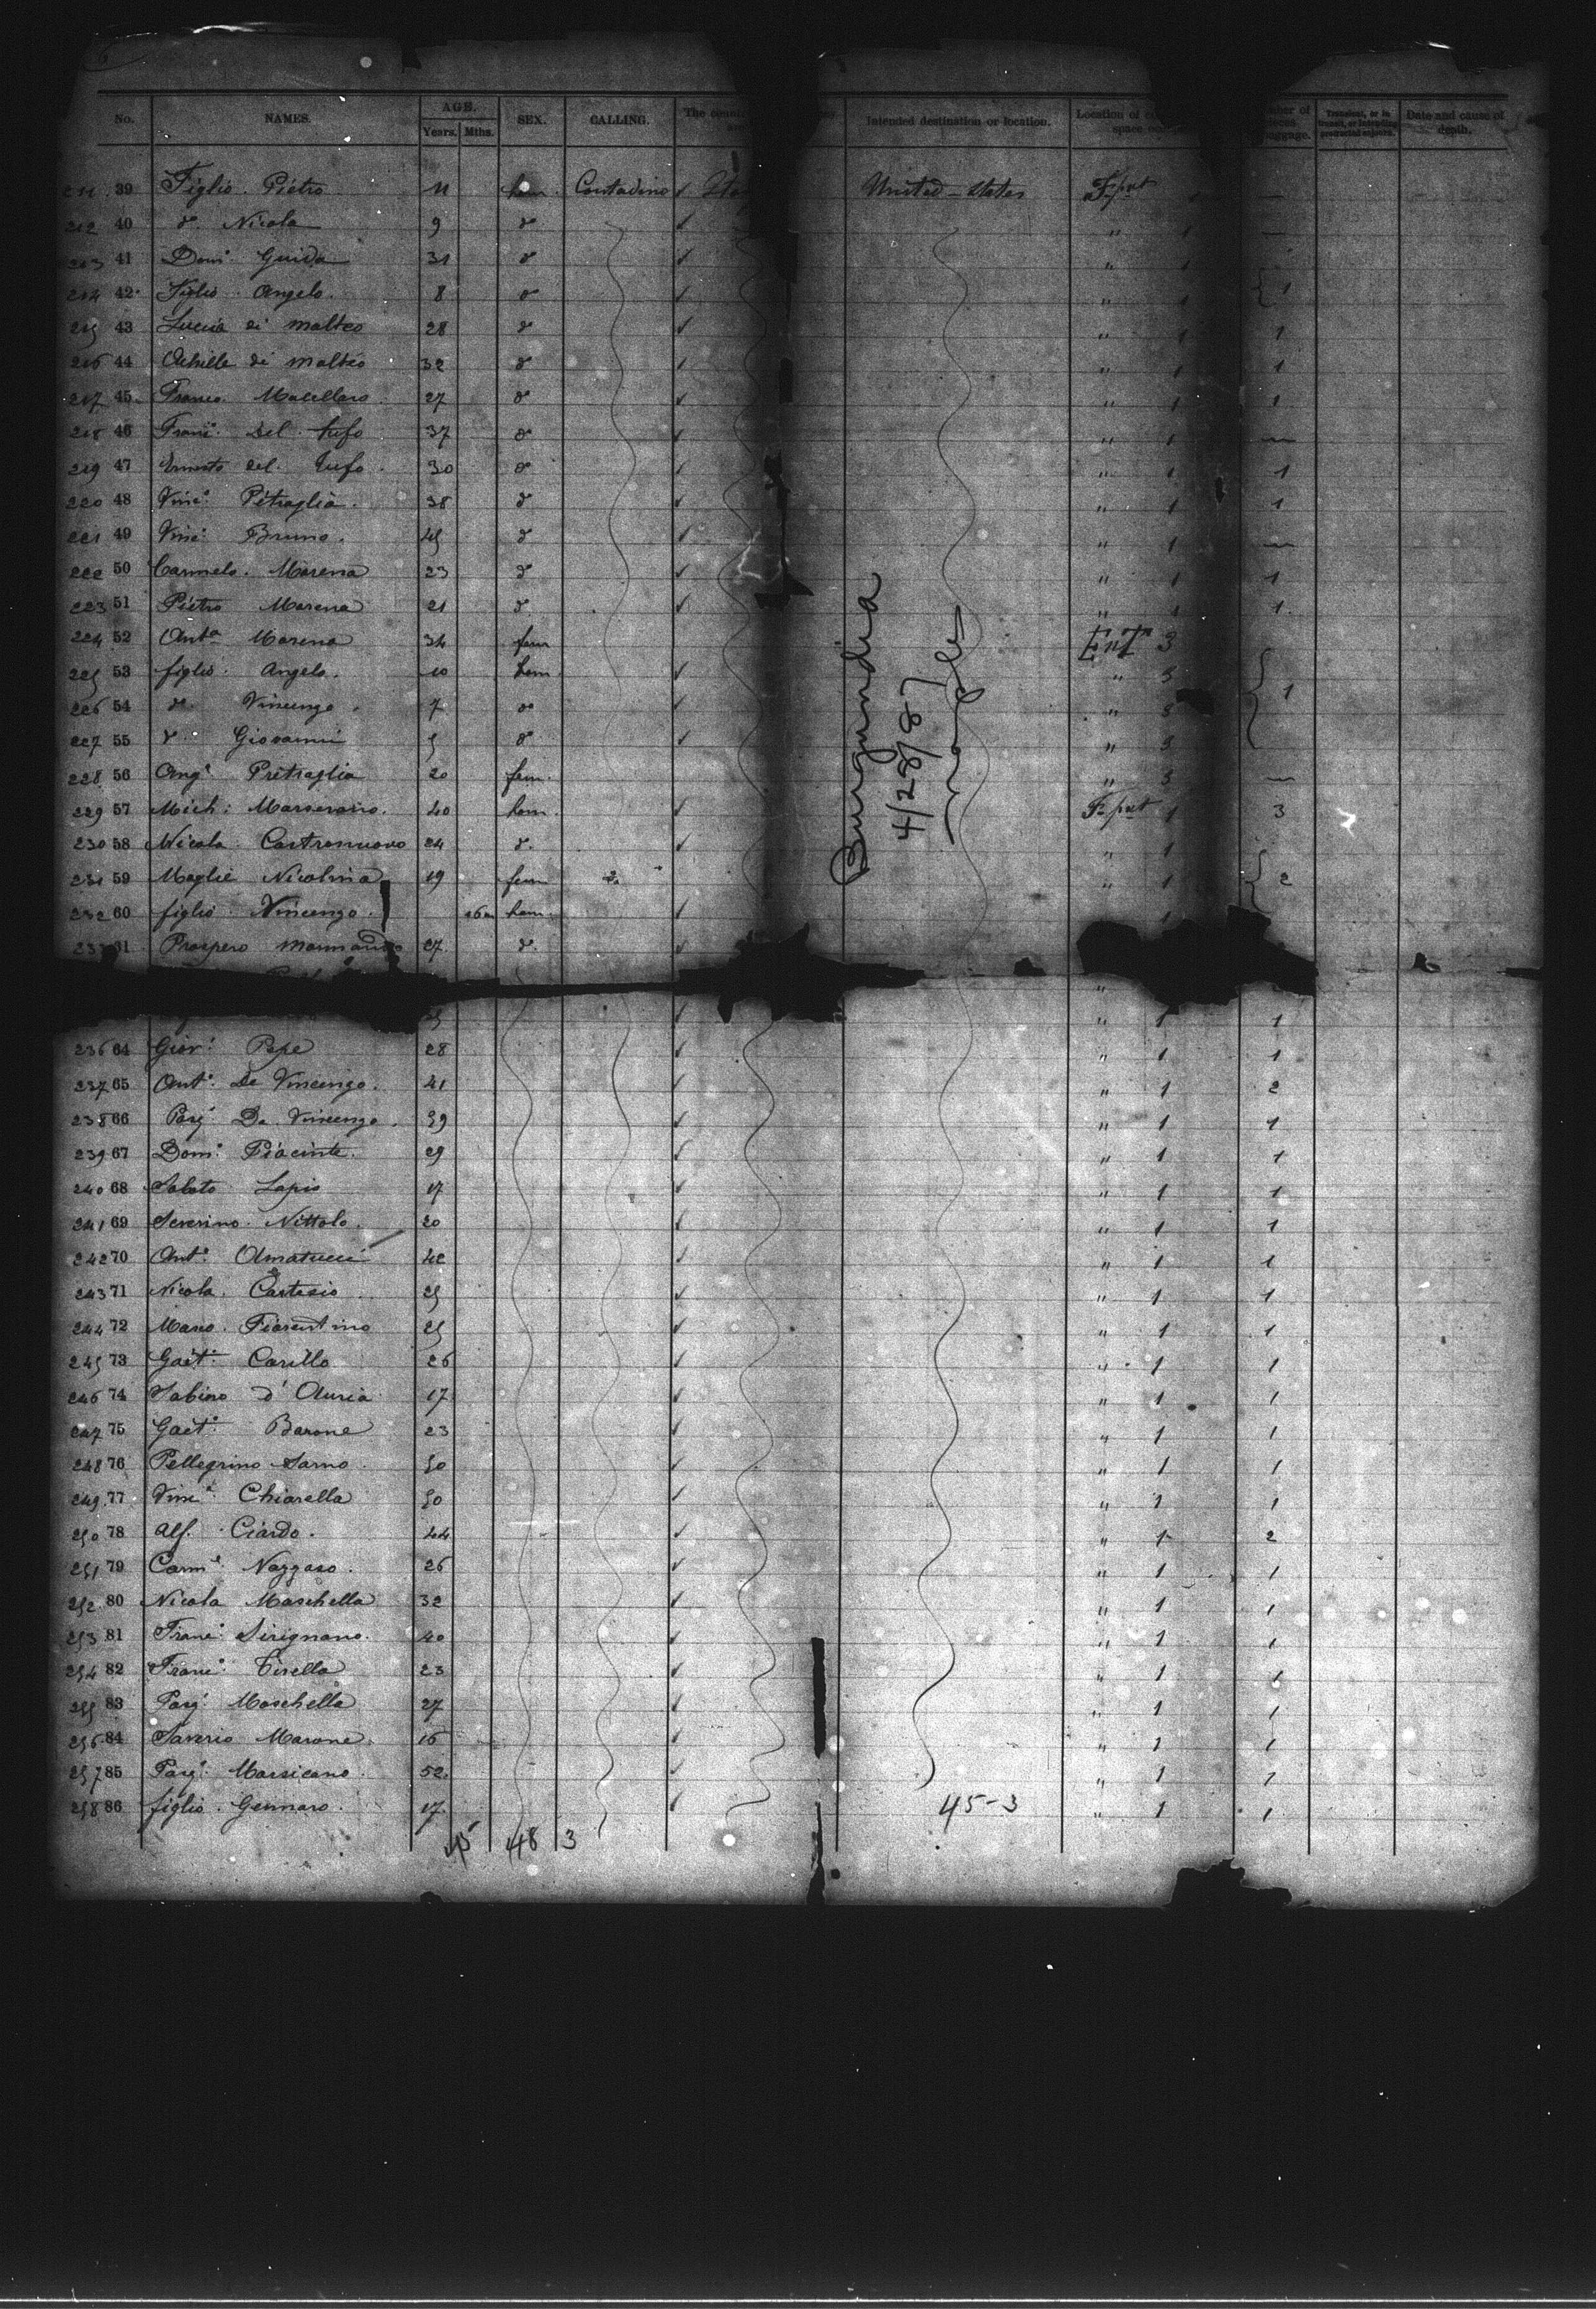 No. NAMES. AGE. Years. Mths. SEX. CALLING. The Intended destination or location. Location of space of Date and cause of depth.
211 39 Figlio Pietro 11 hom Contadino United-States F. put
212 40 d. Nicola 9 d " 1 —
213 41 Domᵒ Guida 31 d " 1
214 42 Figlio Angelo. 8 d " 1 1
215 43 Lucia di Matteo 28 d " 1 1
216 44 Achille di Matteo 32 d " 1 1
217 45 Franco. Macellaro 27 d " 1 1
218 46 Francᵒ del tufo 37 d " 1 —
219 47 Ernesto del Tufo. 30 d " 1 1
220 48 Vincᵒ Petraglia. 38 d " 1 1
221 49 Vincᵒ Bruno. 45 d " 1 —
222 50 Carmelo. Morena 23 d " 1 1
223 51 Pietro Morena 21 d. " 1 1
224 52 Antᵃ Morena 34 fem Entᵉ 3
225 53 figlio Angelo. 10 hom " 3
226 54 d. Vincenzo. 7 d " 3 1
227 55 d Giovanni 5 d " 3
228 56 Angᵃ Pietraglia 20 fem. " 3 —
229 57 Mich: 40 hom. F. put 1 3
230 58 Nicola Castronuovo 24 d. " 1
231 59 Moglie Nicolina 19 fem " 1 2
232 60 figlio Vincenzo. 26m hom. 1
233 61 Prospero 27 d.
Burgundia
4/28/87
Naples
" 1 1
236 64 Giovᵒ Pepe 28 " 1 1
237 65 Antᵒ De Vincenzo. 41 " 1 2
238 66 Pasqᵉ De Vincenzo. 39 " 1 1
239 67 Domᵒ Piacinte. 29 " 1 1
240 68 Sabato Lapio 17 " 1 1
241 69 Severino Nittolo. 20 " 1 1
242 70 Antᵒ Amatucci 42 " 1 1
243 71 Nicola. Cartesio 25 " 1 1
244 72 Marco. Fiorentino 25 " 1 1
245 73 Gaetᵒ Carillo 26 " 1 1
246 74 Sabino d'Auria 17 " 1 1
247 75 Gaetᵒ Barone 23 " 1 1
248 76 Pellegrino Sarno. 50 " 1 1
249 77 Vincᵒ Chiarella 50 " 1 1
250 78 Alf. Ciardo. 44 " 1 2
251 79 Carmᵉ Nazzaro. 26 " 1 1
252 80 Nicola Moschella 32 " 1 1
253 81 Francᵒ Sirignano. 40 " 1 1
254 82 Francᵒ Tirella 23 " 1 1
255 83 Pasqᵉ Moschella 27 " 1 1
256 84 Saverio Marone. 16 " 1 1
257 85 Pasqᵉ Marsicano. 52 " 1 1
258 86 figlio. Gennaro. 17. 45-3 " 1 1
45 48 3